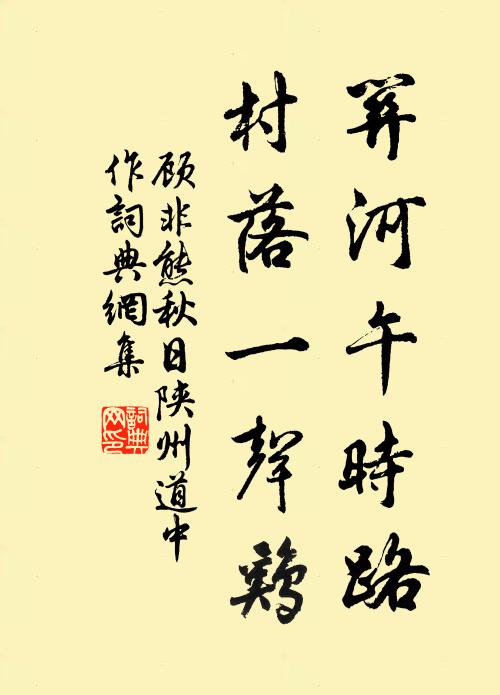 關河午時路
村落一聲鷄
顾非熊秋日陝州道中
作詞典網集
詞典
网印